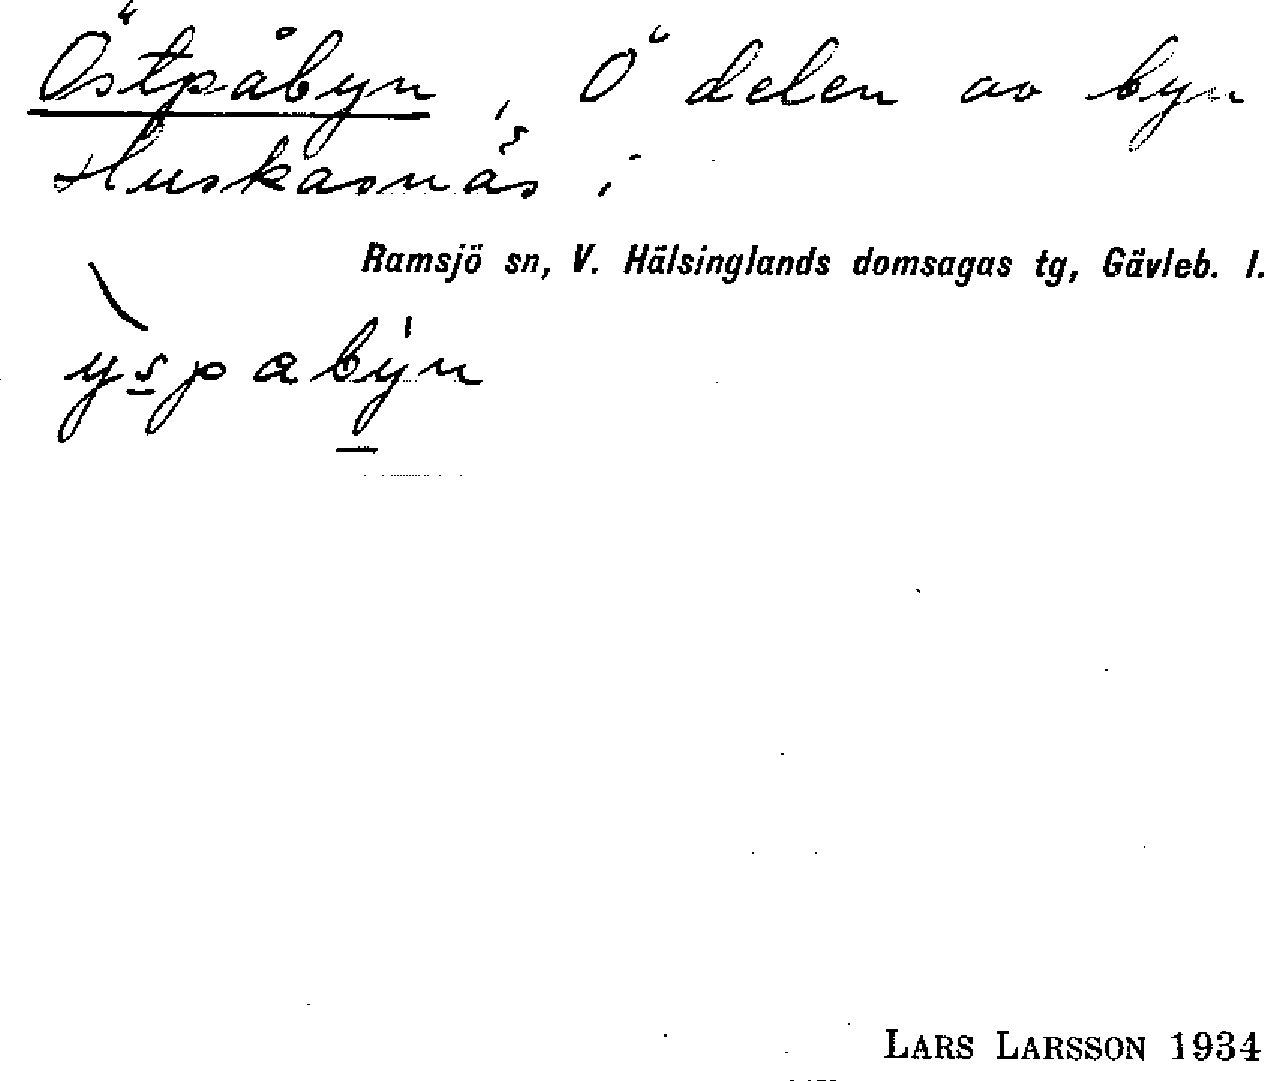 Östpåbyn, Ö delen av byn
Huskasnäs i
Ramsjö sn, V. Hälsinglands domsagas tg, Gävleb. l.
yspabýn
LARS LARSSON 1934